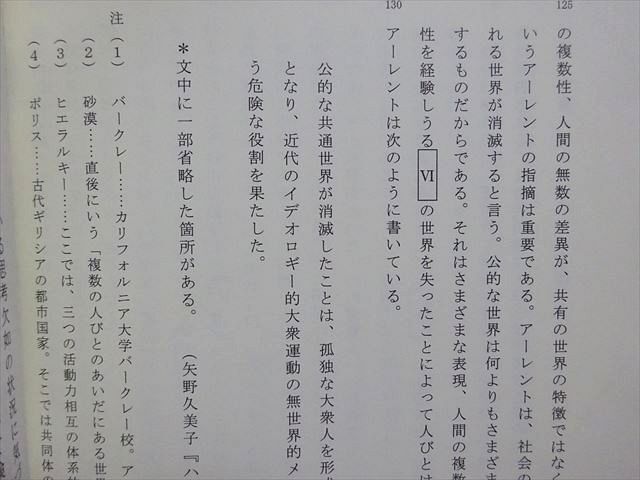 125
の複数性、人間の無数の差異が、共有の世界の特徴ではなく
いうアーレントの指摘は重要である。アーレントは、社会の
れる世界が消滅すると言う。公的な世界は何よりもさまざま
するものだからである。それはさまざまな表現、人間の複数
性を経験しうる Ⅵ の世界を失ったことによって人びとは
130
アーレントは次のように書いている。
公的な共通世界が消滅したことは、孤独な大衆人を形成
となり、近代のイデオロギー的大衆運動の無世界的メ
う危険な役割を果たした。
（矢野久美子『ハ
＊文中に一部省略した箇所がある。
注
（1） バークレー……カリフォルニア大学バークレー校。ア
（2） 砂漠……直後にいう「複数の人びとのあいだにある世界
（3） ヒエラルキー……ここでは、三つの活動力相互の体系的
（4） ポリス……古代ギリシアの都市国家。そこでは共同体の
る思考欠如の状況に